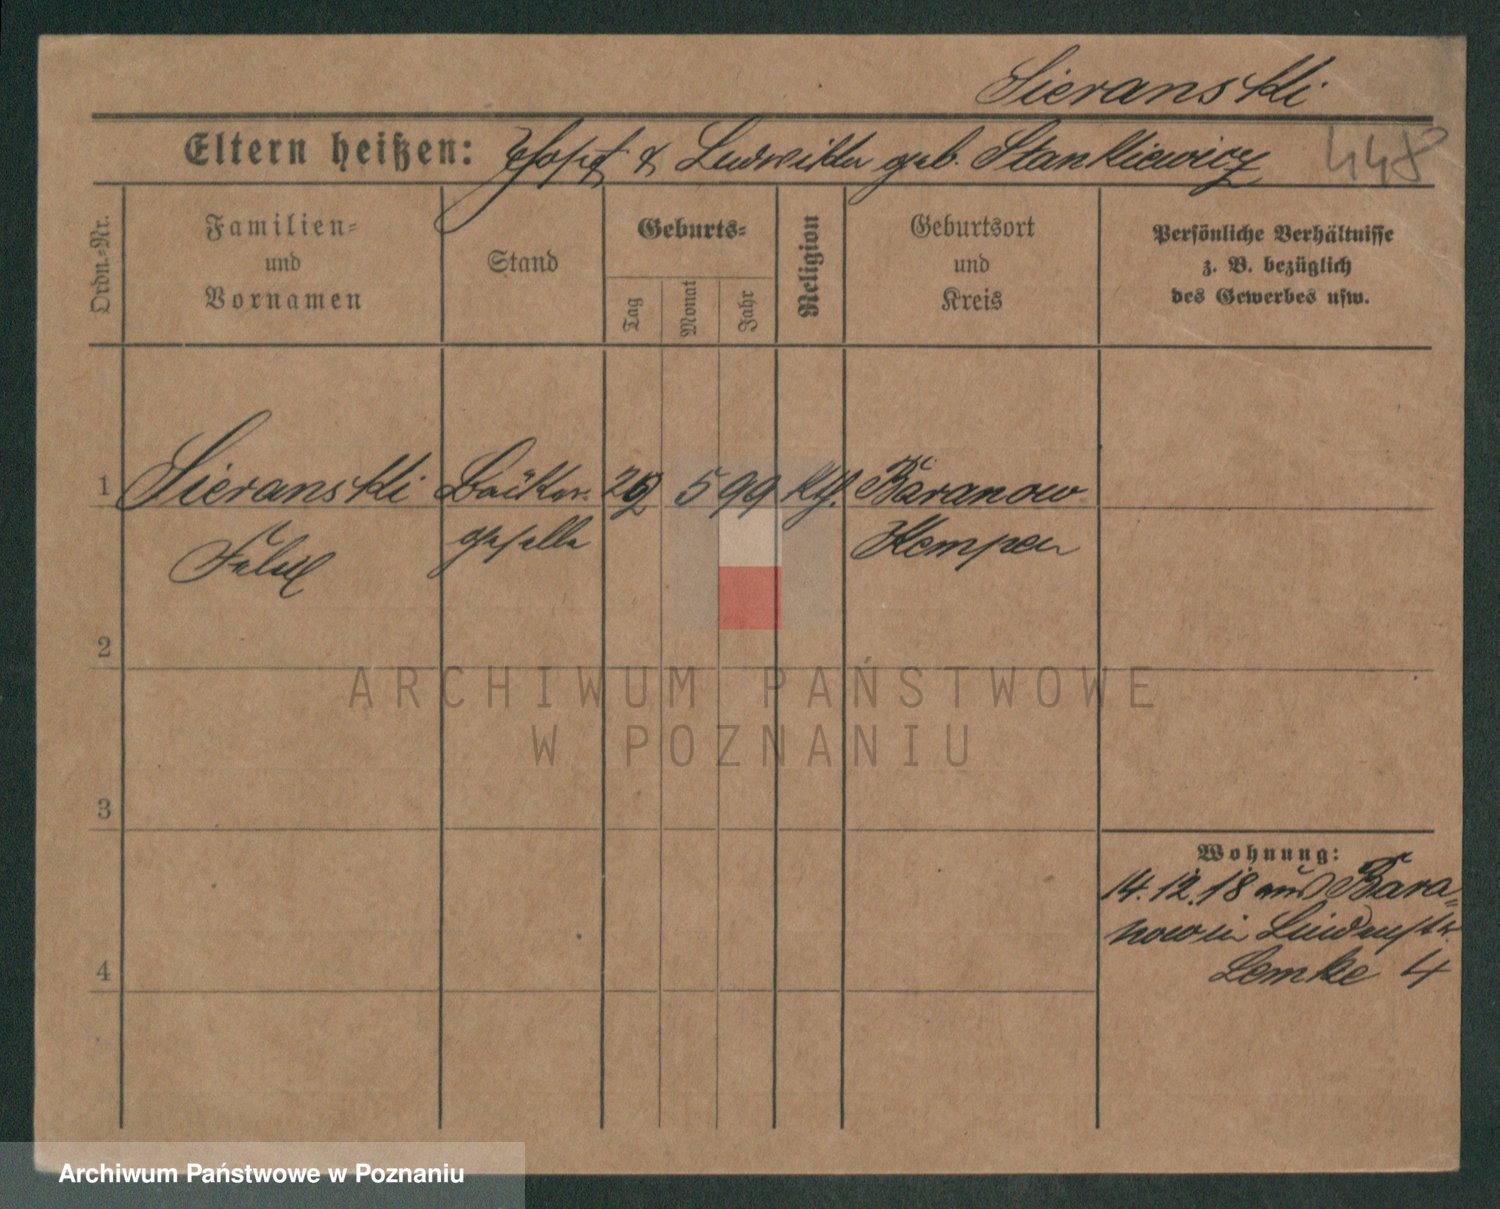 Sieranski
Eltern heißen: Josef & Ludwika geb. Stankiewicz
448
Ordn.-Nr.
Familien-
und
Vornamen
Stand
Geburts-
Tag
Monat
Jahr
Religion
Geburtsort
und
Kreis
Persönliche Verhältnisse
z. B. bezüglich
des Gewerbes usw.
1 Sieranski Bäcker- 5 99 kth. Baranow
geselle Kempen
2
3
4
Wohnung:
14.12.18 aus Bara=
now in Lindenstr.
Lemke 4
ARCHIWUM PAŃSTWOWE
W POZNANIU
Archiwum Państwowe w Poznaniu